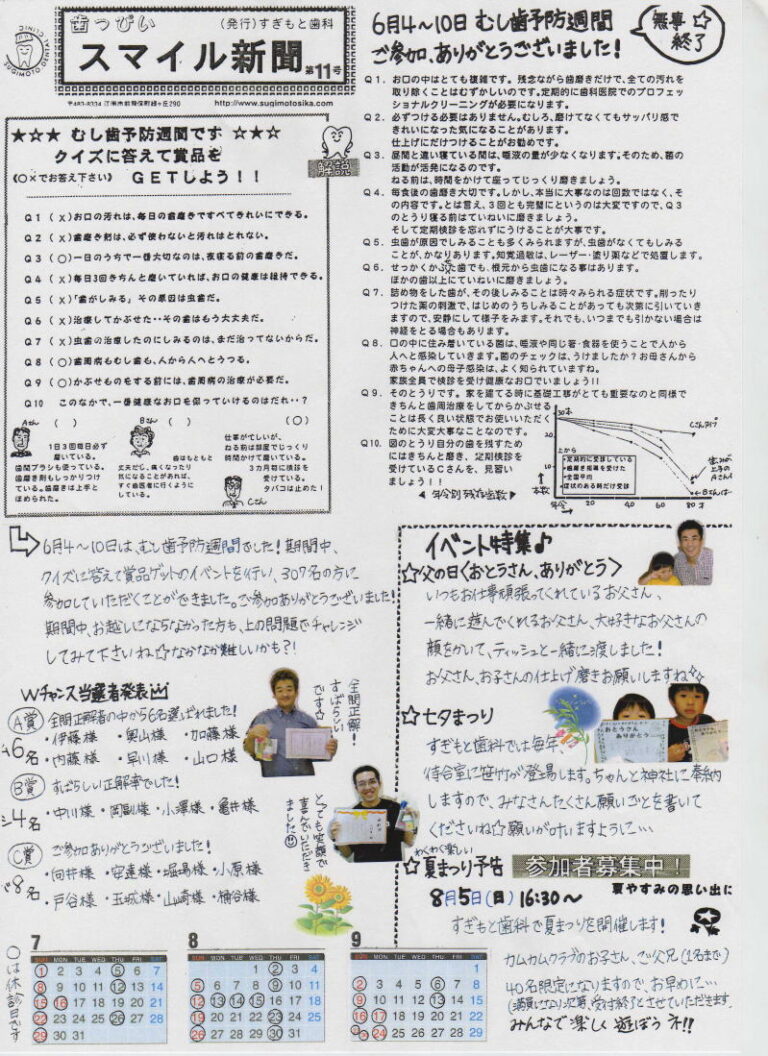 SUGIMOTO DENTAL CLINIC
歯っぴい
(発行)すぎもと歯科
スマイル新聞
第11号
〒483-8334 江南市前飛保町緑ヶ丘290
http://www.sugimotosika.com
★☆★ むし歯予防週間です ☆★☆
クイズに答えて賞品を
《○×でお答え下さい》 GETしよう!!
Q1 (×)お口の汚れは、毎日の歯磨きですべてきれいにできる。
Q2 (×)歯磨き剤は、必ず使わないと汚れはとれない。
Q3 (○)一日のうちで一番大切なのは、夜寝る前の歯磨きだ。
Q4 (×)毎日3回きちんと磨いていれば、お口の健康は維持できる。
Q5 (×)「歯がしみる」その原因は虫歯だ。
Q6 (×)治療してかぶせた・・その歯はもう大丈夫だ。
Q7 (×)虫歯の治療したのにしみるのは、まだ治ってないからだ。
Q8 (○)歯周病もむし歯も、人から人へとうつる。
Q9 (○)かぶせものをする前には、歯周病の治療が必要だ。
Q10 このなかで、一番健康なお口を保っていけるのはだれ・・?
Aさん ( )
Bさん ( )
(○)
1日3回毎日必ず
磨いている。
歯間ブラシも使っている。
歯磨き剤もしっかりつけ
ている。歯磨きは上手と
ほめられた。
歯はもともと
丈夫だし、痛くなったり
気になることがあれば、
すぐ歯医者に行くように
している。
仕事が忙しいが、
ねる前は部屋でじっくり
時間かけて磨いている。
3カ月毎に検診を
受けている。
タバコは止めた!
Cさん
解説
6月4〜10日 むし歯予防週間
ご参加、ありがとうございました!
無事☆
終了
Q1. お口の中はとても複雑です。残念ながら歯磨きだけで、全ての汚れを
取り除くことはむずかしいのです。定期的に歯科医院でのプロフェッ
ショナルクリーニングが必要になります。
Q2. 必ずつける必要はありません。むしろ、磨けてなくてもサッパリ感で
きれいになった気になることがあります。
仕上げにだけつけることがお勧めです。
Q3. 昼間と違い寝ている間は、唾液の量が少なくなります。そのため、菌の
活動が活発になるのです。
ねる前は、時間をかけて座ってじっくり磨きましょう。
Q4. 毎食後の歯磨き大切です。しかし、本当に大事なのは回数ではなく、そ
の内容です。とは言え、3回とも完璧にというのは大変ですので、Q3
のとうり寝る前はていねいに磨きましょう。
そして定期検診を忘れずにうけることが大事です。
Q5. 虫歯が原因でしみることも多くみられますが、虫歯がなくてもしみる
ことが、かなりあります。知覚過敏は、レーザー・塗り薬などで処置します。
Q6. せっかくかぶせた歯でも、根元から虫歯になる事はあります。
ほかの歯以上にていねいに磨きましょう。
Q7. 詰め物をした歯が、その後しみることは時々みられる症状です。削ったり
つけた薬の刺激で、はじめのうちしみることがあっても次第に引いていき
ますので、安静にして様子をみます。それでも、いつまでも引かない場合は
神経をとる場合もあります。
Q8. 口の中に住み着いている菌は、唾液や同じ箸・食器を使うことで人から
人へと感染していきます。菌のチェックは、うけましたか?お母さんから
赤ちゃんへの母子感染は、よく知られていますね。
家族全員で検診を受け健康なお口でいましょう!!
Q9. そのとうりです。家を建てる時に基礎工事がとても重要なのと同様で
きちんと歯周治療をしてからかぶせる
ことは長く良い状態でお使いいただく
ために大変大事なことなのです。
Q10. 図のとうり自分の歯を残すため
にはきちんと磨き、定期検診を
受けているCさんを、見習い
ましょう!!
◀年令別 残存歯数▶
30本
20
10
本数
年令
20
40
60
80才
上から
・定期的に受診している
・歯磨き指導を受けた
・全国平均
・症状のある時だけ受診
Cさんタイプ
上手の
Aさんは
Bさんは
6月4〜10日は、むし歯予防週間でした!期間中、
クイズに答えて賞品ゲットのイベントを行い、307名の方に
参加していただくことができました。ご参加ありがとうございました!
期間中、お越しにならなかった方も、上の問題でチャレンジ
してみて下さいね☆なかなか難しいかも?!
Wチャンス当選者発表
A賞 全問正解者の中から6名選ばれました!
6名
・伊藤様 ・奥山様 ・加藤様
・内藤様 ・早川様 ・山口様
B賞 すばらしい正解率でした!
4名
・中川様 ・岡副様 ・小澤様 ・亀井様
C賞 ご参加ありがとうございました!
8名
・向井様 ・安達様 ・堀場様 ・小原様
・戸谷様 ・玉城様 ・山崎様 ・桶谷様
全問正解!
すばらしい
です☆
とっても笑顔で
喜んでいただき
ました
イベント特集♪
☆父の日〈おとうさん、ありがとう〉
いつもお仕事頑張ってくれているお父さん、
一緒に遊んでくれるお父さん、大好きなお父さんの
顔をかいて、ティッシュと一緒に渡しました!
お父さん、お子さんの仕上げ磨きお願いしますね☆☆
☆七夕まつり
おとうさん
ありがとう
すぎもと歯科では毎年
待合室に笹竹が登場します。ちゃんと神社に奉納
しますので、みなさんたくさん願いごとを書いて
くださいね☆願いが叶いますように…
わくわく楽しい
☆夏まつり予告 参加者募集中!
8月5日(日)16:30〜
夏やすみの思い出に
すぎもと歯科で夏まつりを開催します!
カムカムクラブのお子さん、ご父兄(1名まで)
40名限定になりますので、お早めに…
(満員になり次第、受付終了とさせていただきます。
みんなで楽しく遊ぼうネ!!
○は休診日です
7
SUN MON TUE WED THU FRI SAT
1 2 3 4 5 6 7
8 9 10 11 12 13 14
15 16 17 18 19 20 21
22 23 24 25 26 27 28
29 30 31
8
SUN MON TUE WED THU FRI SAT
1 2 3 4
5 6 7 8 9 10 11
12 13 14 15 16 17 18
19 20 21 22 23 24 25
26 27 28 29 30 31
9
SUN MON TUE WED THU FRI SAT
1
2 3 4 5 6 7 8
9 10 11 12 13 14 15
16 17 18 19 20 21 22
23 24 25 26 27 28 29